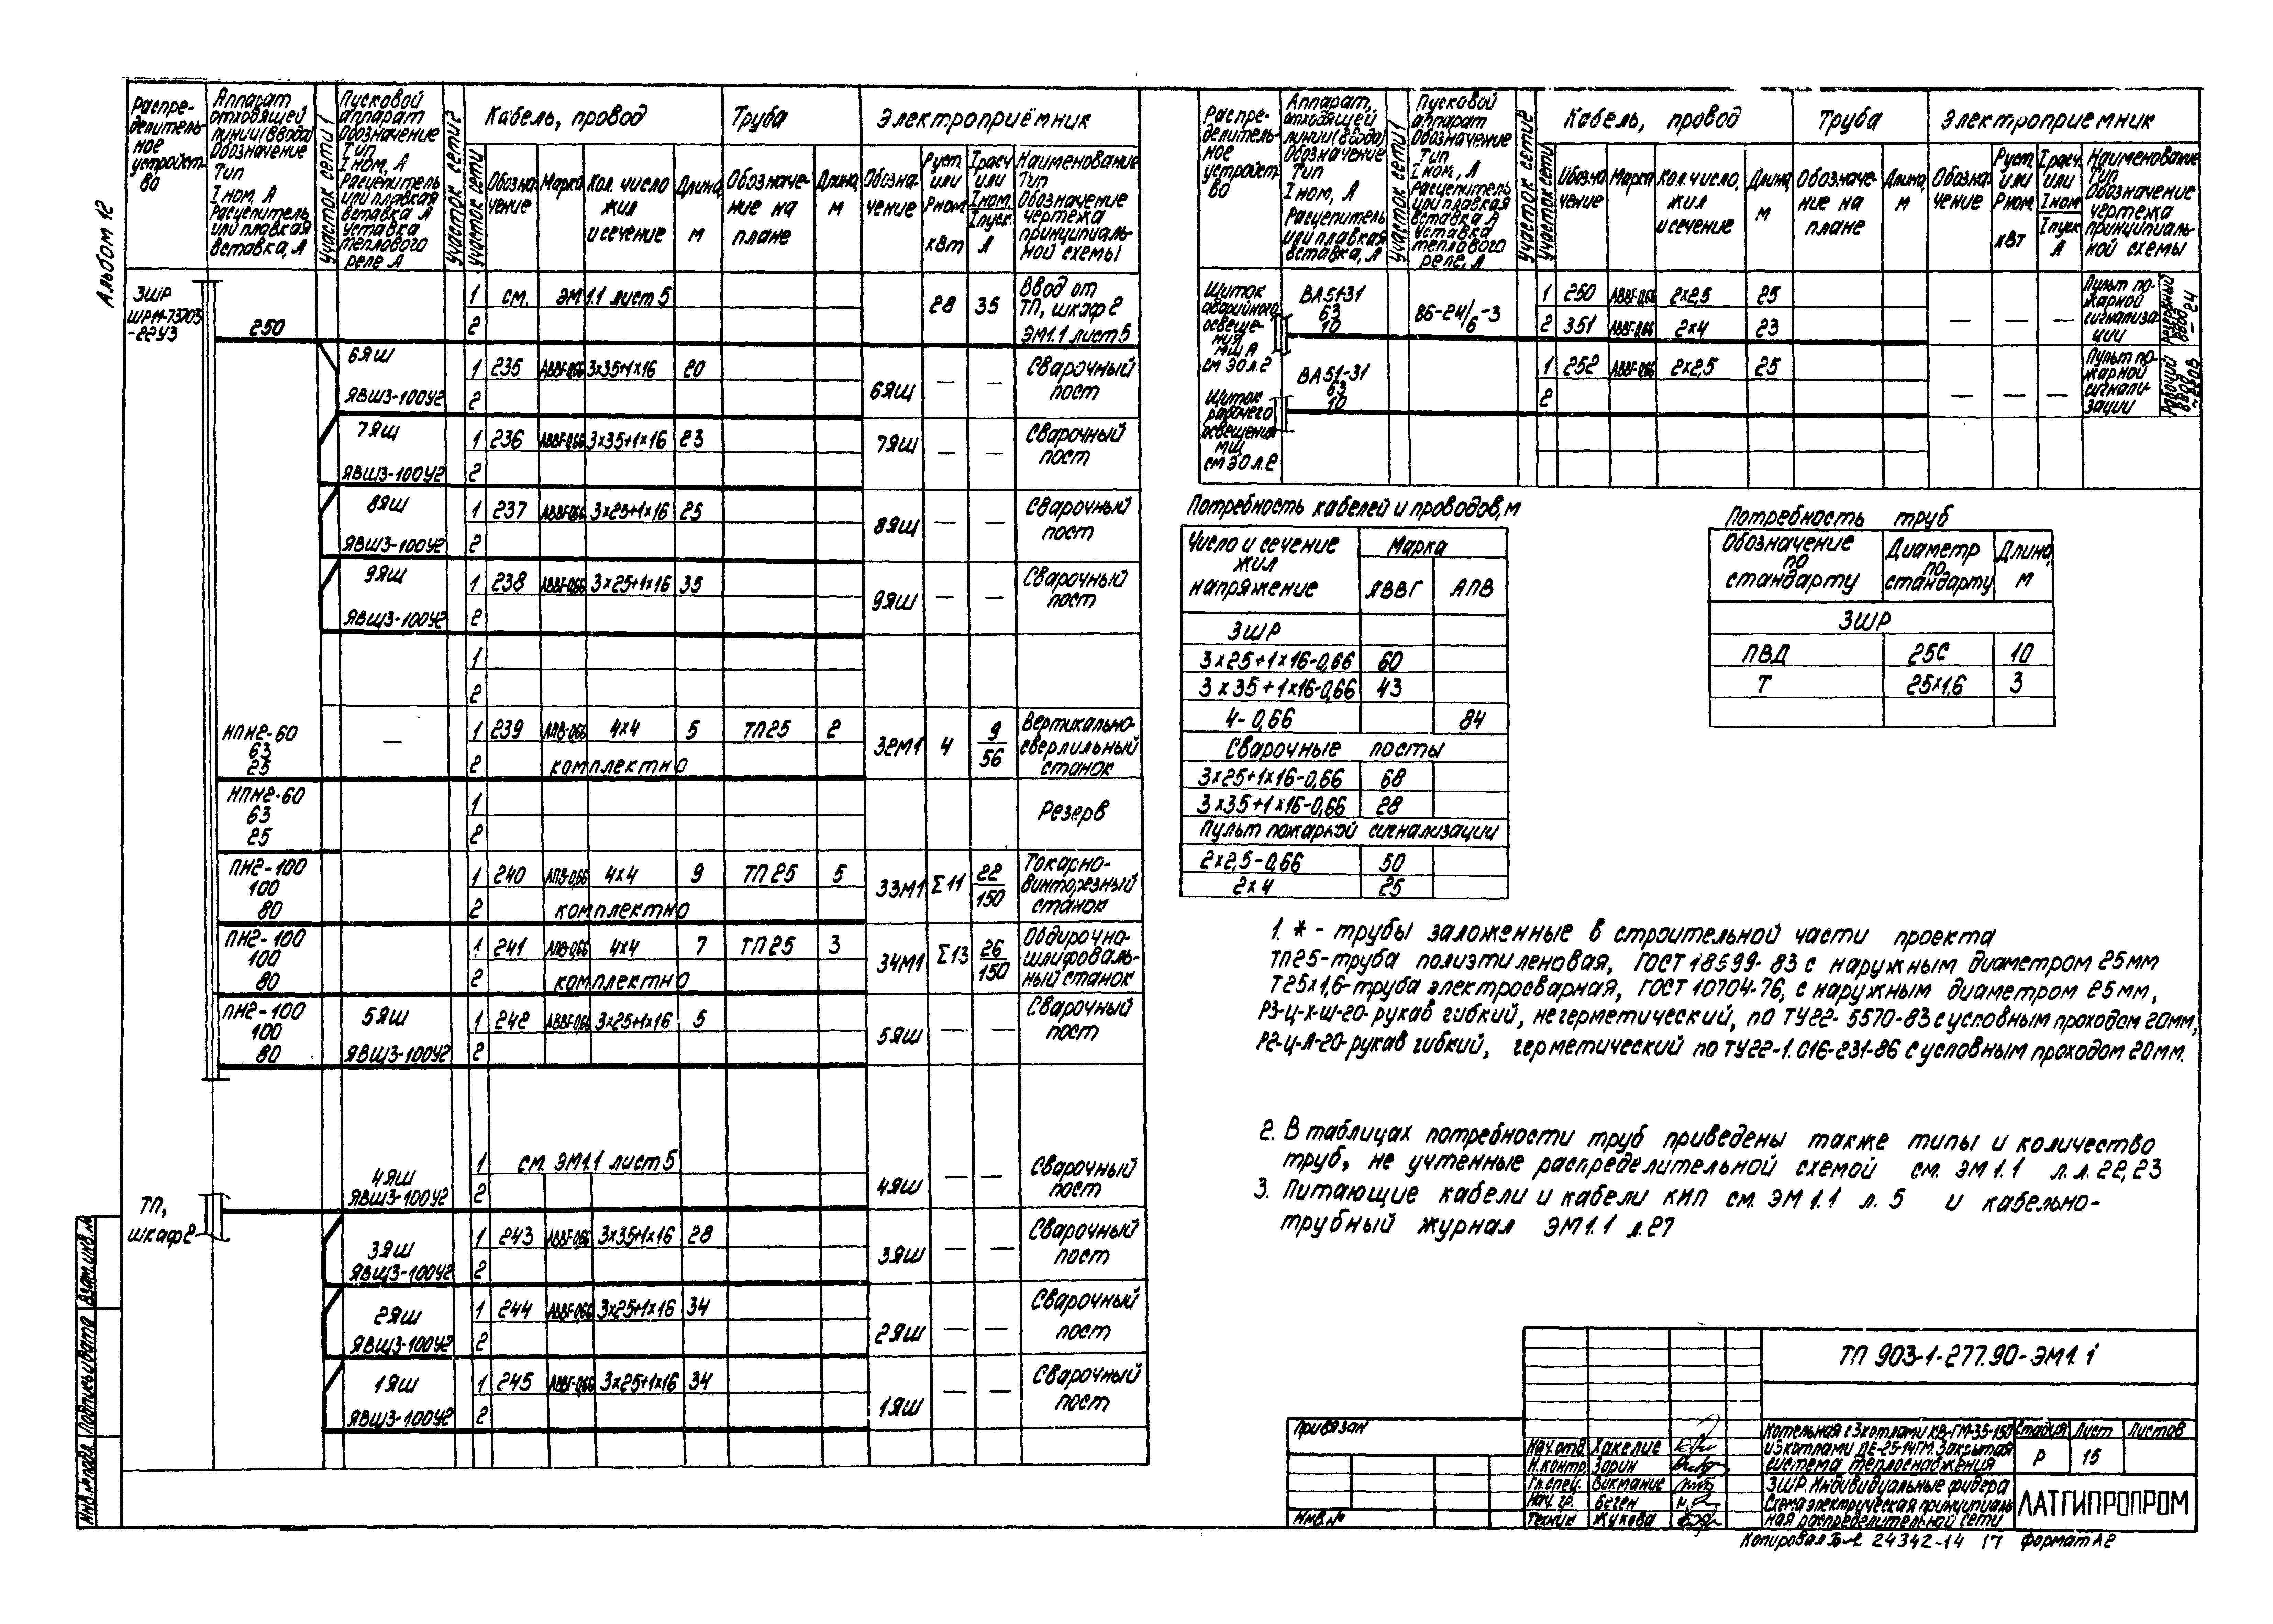 Альбом 12
Распре-
делитель-
ное
устройст-
во
Аппарат
отходящей
линии (ввода)
Обозначение
Тип
I ном, А
Расцепитель
или плавкая
вставка, А
Участок сети 1
Пусковой
аппарат
Обозначение
Тип
I ном, А
Расцепитель
или плавкая
вставка А
уставка
теплового
реле А
Участок сети 2
Участок сети
Кабель, провод
Обозна-
чение
Марка
Кол. число
жил
и сечение
Длина,
м
Труба
Обозначе-
ние на
плане
Длина,
м
Электроприёмник
Обозна-
чение
Руст.
или
Рном.
кВт
Iрасч.
или
Iном.
Iпуск.
А
Наименование
Тип
Обозначение
чертежа
принципиаль-
ной схемы
3ШР
ШР11-73703
-22У3
250
1 см. ЭМ1.1 лист 5
2
28 35
Ввод от
ТП, шкаф 2
ЭМ1.1 лист 5
6ЯШ
ЯВШ3-100У2
1 235 АВВГ-0,66 3х35+1х16 20
2
6ЯШ — —
Сварочный
пост
7ЯШ
ЯВШ3-100У2
1 236 АВВГ-0,66 3х35+1х16 23
2
7ЯШ — —
Сварочный
пост
8ЯШ
ЯВШ3-100У2
1 237 АВВГ-0,66 3х25+1х16 25
2
8ЯШ — —
Сварочный
пост
9ЯШ
ЯВШ3-100У2
1 238 АВВГ-0,66 3х25+1х16 35
2
9ЯШ — —
Сварочный
пост
1
2
НПН2-60
63
25
—
1 239 АПВ-0,66 4х4 5 ТП25 2
2 комплектно
32М1 4 9
56
Вертикально-
сверлильный
станок
НПН2-60
63
25
1
2
Резерв
ПН2-100
100
80
1 240 АПВ-0,66 4х4 9 ТП25 5
2 комплектно
33М1 Σ11 22
150
Токарно-
винторезный
станок
ПН2-100
100
80
1 241 АПВ-0,66 4х4 7 ТП25 3
2 комплектно
34М1 Σ13 26
150
Обдирочно-
шлифоваль-
ный станок
ПН2-100
100
80
5ЯШ
ЯВШ3-100У2
1 242 АВВГ-0,66 3х25+1х16 5
2
5ЯШ — —
Сварочный
пост
ТП,
шкаф 2
4ЯШ
ЯВШ3-100У2
1 см. ЭМ1.1 лист 5
2
4ЯШ — —
Сварочный
пост
3ЯШ
ЯВШ3-100У2
1 243 АВВГ-0,66 3х35+1х16 28
2
3ЯШ — —
Сварочный
пост
2ЯШ
ЯВШ3-100У2
1 244 АВВГ-0,66 3х25+1х16 34
2
2ЯШ — —
Сварочный
пост
1ЯШ
ЯВШ3-100У2
1 245 АВВГ-0,66 3х25+1х16 34
2
1ЯШ — —
Сварочный
пост
Распре-
делитель-
ное
устройст-
во
Аппарат,
отходящей
линии (ввода)
Обозначение
Тип
I ном, А
Расцепитель
или плавкая
вставка, А
Участок сети 1
Пусковой
аппарат
Обозначение
Тип
I ном, А
Расцепитель
или плавкая
вставка А
уставка
теплового
реле, А
Участок сети 2
Участок сети
Кабель, провод
Обозна-
чение
Марка
Кол. число,
жил
и сечение
Длина,
м
Труба
Обозначе-
ние на
плане
Длина,
м
Электроприемник
Обозна-
чение
Руст.
или
Рном.
кВт
Iрасч.
или
Iном
Iпуск
А
Наименование
Тип
Обозначение
чертежа
принципиаль-
ной схемы
Щиток
аварийного
освеще-
ния
МЩА
см ЭО л.2
ВА51-31
63
10
ВБ-24/6-3
1 250 АВВГ-0,66 2х2,5 25
2 351 АВВГ-0,66 2х4 23
— — —
Пульт по-
жарной
сигнализа-
ции
Резервный
ввод
— 24
Щиток
рабочего
освещения
МЩ
см ЭО л.2
ВА51-31
63
10
1 252 АВВГ-0,66 2х2,5 25
2
— — —
Пульт по-
жарной
сигнали-
зации
Рабочий
ввод
~230В
Потребность кабелей и проводов, м
Число и сечение
жил
напряжение
Марка
АВВГ АПВ
3ШР
3х25+1х16-0,66 60
3х35+1х16-0,66 43
4-0,66 84
Сварочные посты
3х25+1х16-0,66 68
3х35+1х16-0,66 28
Пульт пожарной сигнализации
2х2,5-0,66 50
2х4 25
Потребность труб
Обозначение
по
стандарту
Диаметр
по
стандарту
Длина,
м
3ШР
ПВД 25С 10
Т 25х1,6 3
1. * - трубы заложенные в строительной части проекта
ТП25-труба полиэтиленовая, ГОСТ 18599-83 с наружным диаметром 25мм
Т25х1,6-труба электросварная, ГОСТ 10704-76, с наружным диаметром 25мм,
Р3-Ц-Х-Ш-20-рукав гибкий, негерметический, по ТУ22-5570-83 с условным проходом 20мм,
Р2-Ц-А-20-рукав гибкий, герметический по ТУ22-1.016-231-86 с условным проходом 20мм.
2. В таблицах потребности труб приведены также типы и количество
труб, не учтенные распределительной схемой см. ЭМ1.1 л.л. 22,23
3. Питающие кабели и кабели КИП см. ЭМ1.1 л. 5 и кабельно-
трубный журнал ЭМ1.1 л.27
ТП 903-1-277.90-ЭМ1.1
Привязан
Инв.№
Нач.отд. Хакелис
Н.контр. Зорин
Гл.спец. Викмание
Нач. гр. Беген
Техник Жукова
Котельная с 3 котлами КВ-ГМ-35-150
и 3 котлами ДЕ-25-14ГМ. Закрытая
система теплоснабжения
3ШР. Индивидуальные фидера
Схема электрическая принципиаль
ная распределительной сети
Стадия Лист Листов
Р 15
ЛАТГИПРОПРОМ
Копировал 24342-14 17 Формат А2
Взам.инв.№
Подпись и дата
Инв.№ подл.